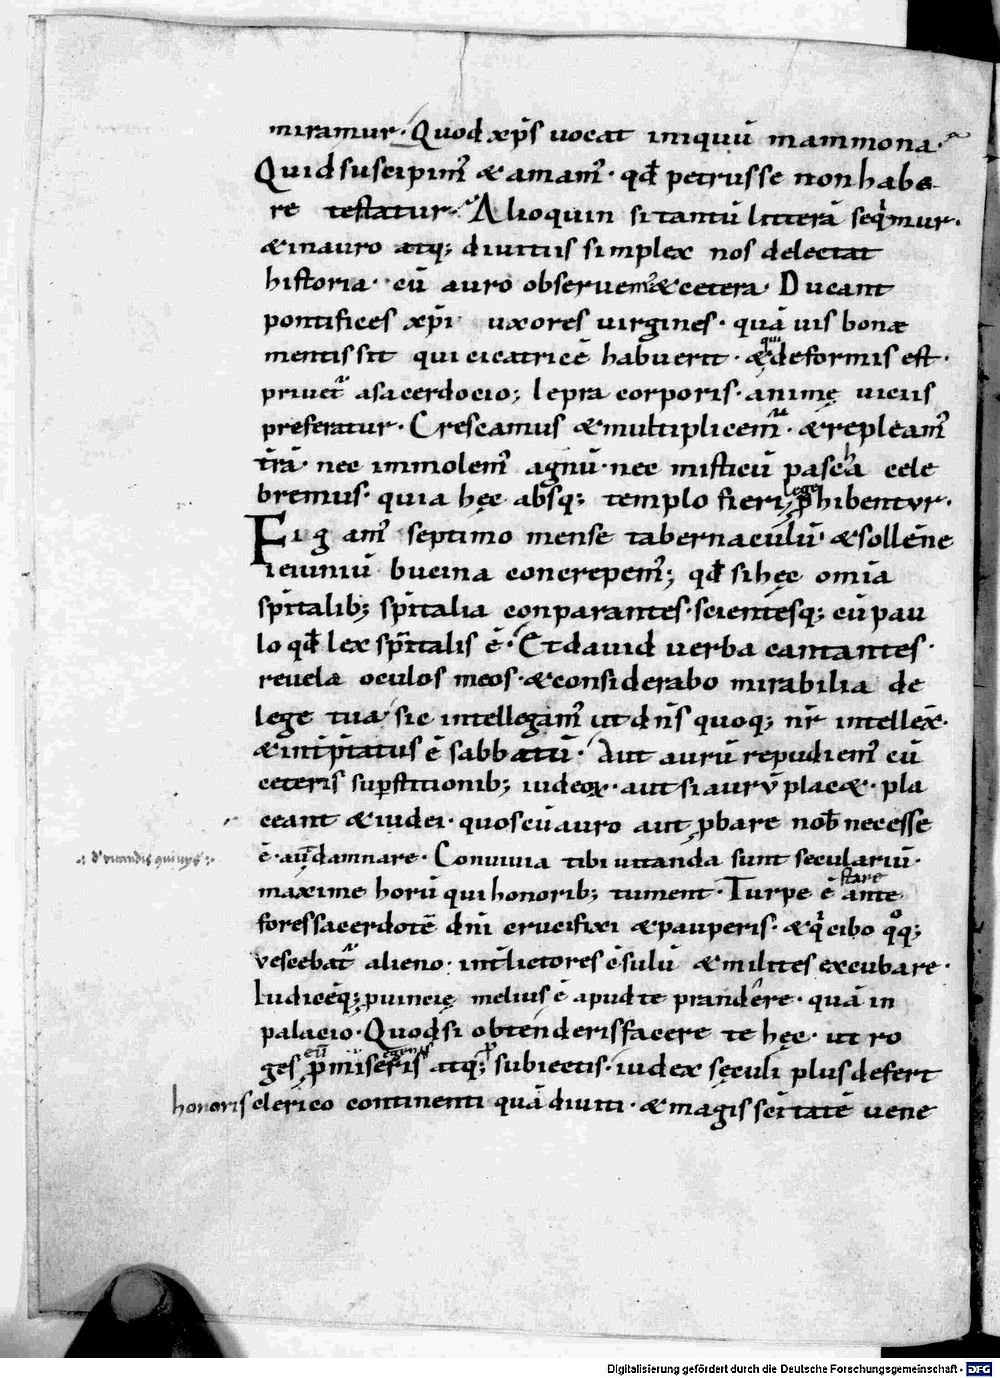 miramur· Quod xp̄s uocat iniquū mammona·
Quid suscipim᷒ & amam᷒· qđ petrus se non habe
re testatur· Alioquin si tantū litterā seq̍mur·
& in auro atq; diuitiis simplex nos delectat
historia· cū auro obseruem᷒ & cetera· Ducant
pontifices xp̄i uxores uirgines· quāuis bonæ
mentis sit qui cicatricē habuerit· & deformis est·
priuet᷒ a sacerdocio; lepra corporis· animę uiciis
preferatur· Crescamus & multiplicem᷒· & repleam᷒
t̄rā· nec immolem᷒ agnū· nec misticū pascha cele
bremus· quia hęc absq; templo fieri lege p̱hibentur·
Fig̅am᷒ septimo mense tabernaculū· & sollēne
ieiuniū bucina concrepem᷒; qđ si hęc om̄ia
sp̄italib; sp̄italia conparantes· scientesq; cū pau
lo qđ lex sp̄italis ē· Et dauid uerba cantantes·
reuela oculos meos· & considerabo mirabilia de
lege tua· sic intellegam᷒ ut dn̄s quoq; nr̄ intellex̄·
& int̄p̱tatus ē sabbatū· Aut aurū repudiem᷒ cū
ceteris sup̱stitionib; iudeoꝝ· aut si aurū plac&· pla
ceant & iudei· quos cū auro aut p̱bare nob̄ necesse
ē· aut̄ damnare· Conuiuia tibi uitanda sunt seculariū·
maxime horū qui honorib; tument· Turpe ē ante
stare
fores sacerdotē dn̄i crucifixi & pauperis· & q̍ cibo q̊q;
uescebat᷒ alieno· lictores c̄sulū & milites excubare·
Iudicēq; p̱uincię melius ē apud te prandēre· quā in
palacio· Quod si obtenderis facere te hęc· ut ro
ges eū p̱ miseris atq; subiectis· iudex sęculi plus defert
honoris clerico continenti quā diuiti· & magis sc̄itatē uene